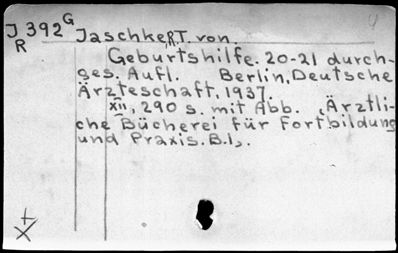 J 392 G
R
Jaschke, R.T. von
Geburtshilfe. 20-21 durch-
ges. Aufl. Berlin, Deutsche
Ärzteschaft, 1937.
XII, 290 s. mit Abb. (Ärztli-
che Bücherei für Fortbildung
und Praxis. B.1).
+
X